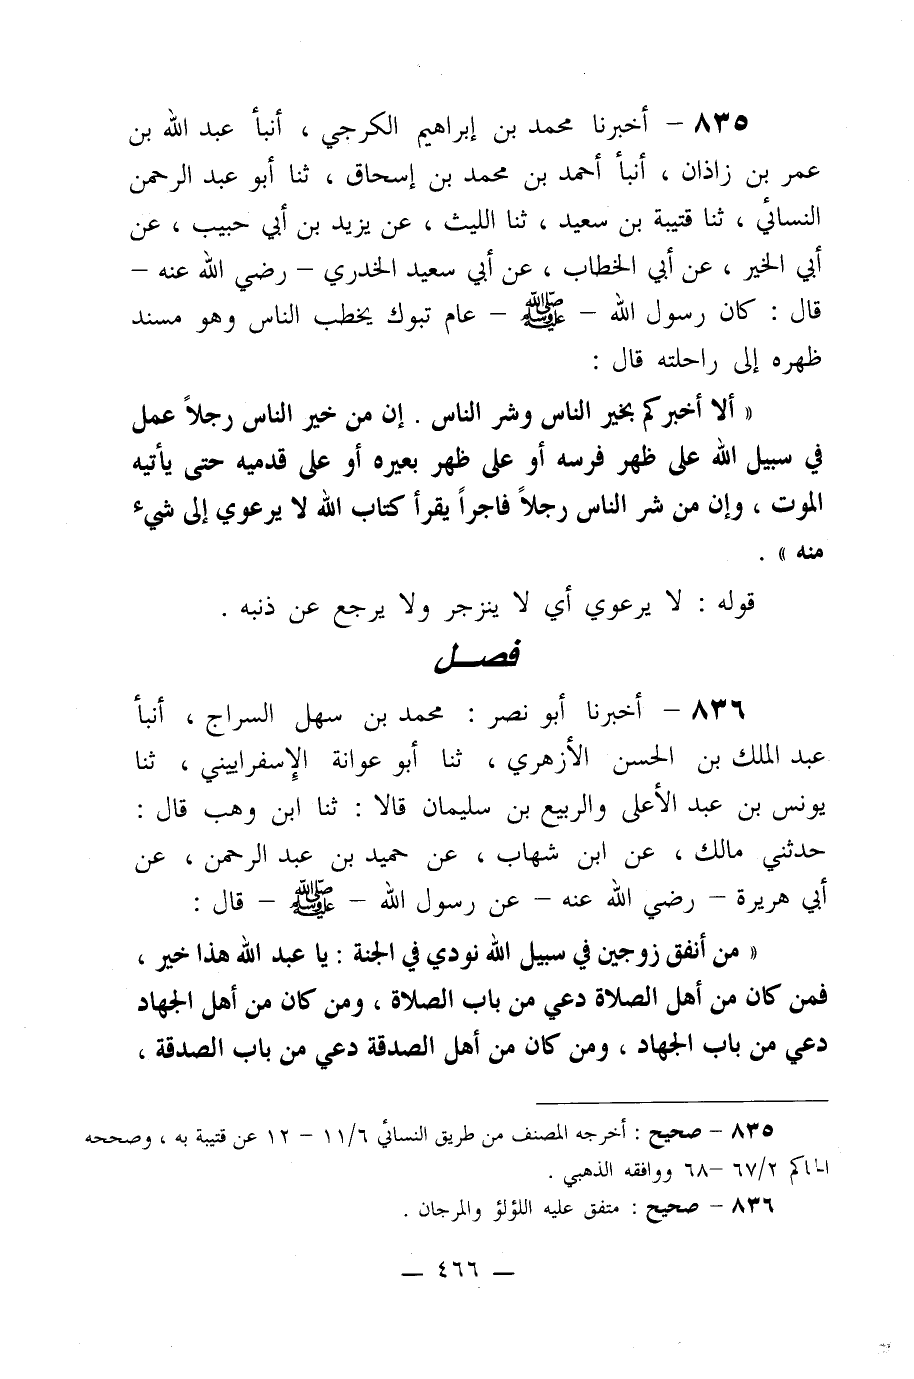 ٨٣٥ – أخبرنا محمد بن إبراهيم الكرجي ، أنبأ عبد الله بن
عمر بن زاذان ، أنبأ أحمد بن محمد بن إسحاق ، ثنا أبو عبد الرحمن
النسائي ، ثنا قتيبة بن سعيد ، ثنا الليث ، عن يزيد بن أبي حبيب ، عن
أبي الخير ، عن أبي الخطاب ، عن أبي سعيد الخدري – رضي الله عنه –
قال : كان رسول الله – ﷺ – عام تبوك يخطب الناس وهو مسند
ظهره إلى راحلته قال :
« ألا أخبركم بخير الناس وشر الناس . إن من خير الناس رجلاً عمل
في سبيل الله على ظهر فرسه أو على ظهر بعيره أو على قدميه حتى يأتيه
الموت ، وإن من شر الناس رجلاً فاجراً يقرأ كتاب الله لا يرعوي إلى شيء
منه » .
قوله : لا يرعوي أي لا ينزجر ولا يرجع عن ذنبه .
فصـــل
٨٣٦ – أخبرنا أبو نصر : محمد بن سهل السراج ، أنبأ
عبد الملك بن الحسن الأزهري ، ثنا أبو عوانة الإسفراييني ، ثنا
يونس بن عبد الأعلى والربيع بن سليمان قالا : ثنا ابن وهب قال :
حدثني مالك ، عن ابن شهاب ، عن حميد بن عبد الرحمن ، عن
أبي هريرة – رضي الله عنه – عن رسول الله – ﷺ – قال :
« من أنفق زوجين في سبيل الله نودي في الجنة : يا عبد الله هذا خير ،
فمن كان من أهل الصلاة دعي من باب الصلاة ، ومن كان من أهل الجهاد
دعي من باب الجهاد ، ومن كان من أهل الصدقة دعي من باب الصدقة ،
٨٣٥ – صحيح : أخرجه المصنف من طريق النسائي ١١/٦ – ١٢ عن قتيبة به ، وصححه
الحاكم ٦٧/٢ –٦٨ ووافقه الذهبي .
٨٣٦ – صحيح : متفق عليه اللؤلؤ والمرجان .
— ٤٦٦ —